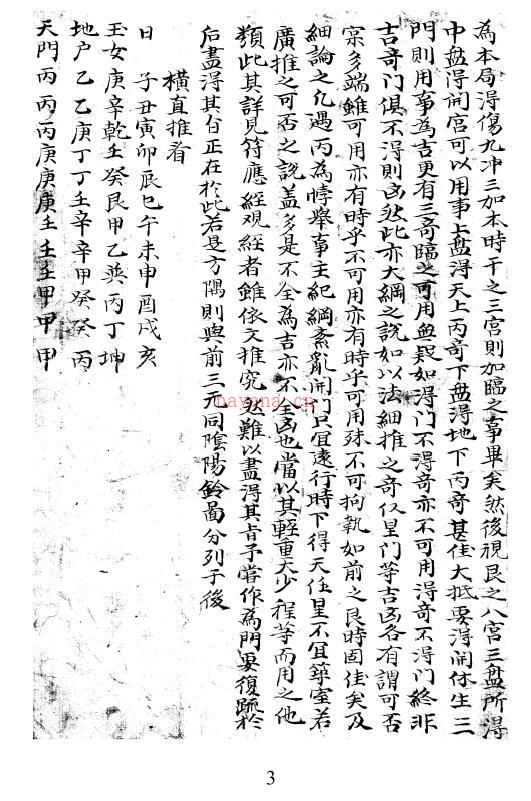 為本局得傷九冲三加本時干之三宫則加臨之事畢矣然後視艮之八宫三盤所得
中盘得開宫可以用事上盘得天上丙奇下盘得地下丙奇甚佳大抵要得開休生三
門則用事為吉更有三奇臨之可用無疑如得門不得奇亦不可用得奇不得門終非
吉奇门俱不得則凶然此亦大綱之説如以法細推之奇仪星门等吉凶各有謂可否
寔多端雖可用亦有時乎不可用亦有時乎可用殊不可拘執如前之艮時固佳矣及
細論之凢遇丙為悖舉事主紀綱紊亂開门只宜遠行時下得天任星不宜築室若
廣推之可否之説盖多是不全為吉亦不全凶也當以其輕重大少程等而用之他
類此其詳見符應經观經者雖依文推究然難以盡得其旨予嘗作為門要復疏於
后盡得其旨正在於此若是方隅則與前三元同陰陽鈴啚分列于後
横直推看
日 子丑寅卯辰巳午未申酉戌亥
玉女庚辛乾壬癸艮甲乙巽丙丁坤
地户乙乙庚丁丁壬辛辛甲癸癸丙
天門丙丙丙庚庚庚壬壬壬甲甲甲
nayana.cn
3